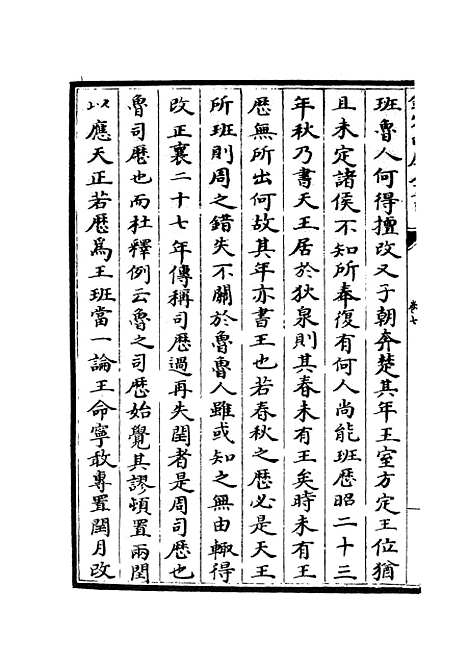 班魯人何得擅改又子朝奔楚其年王室方定王位猶
且未定諸侯不知所奉復有何人尚能班厯昭二十三
年秋乃書天王居於狄泉則其春未有王矣時未有王
厯無所出何故其年亦書王也若春秋之厯必是天王
所班則周之錯失不關於魯魯人雖或知之無由輙得
改正襄二十七年傳稱司厯過再失閏者是周司厯也
魯司厯也而杜釋例云魯之司厯始覺其謬頓置兩閏
以應天正若厯為王班當一論王命寧敢專置閏月改
卷七